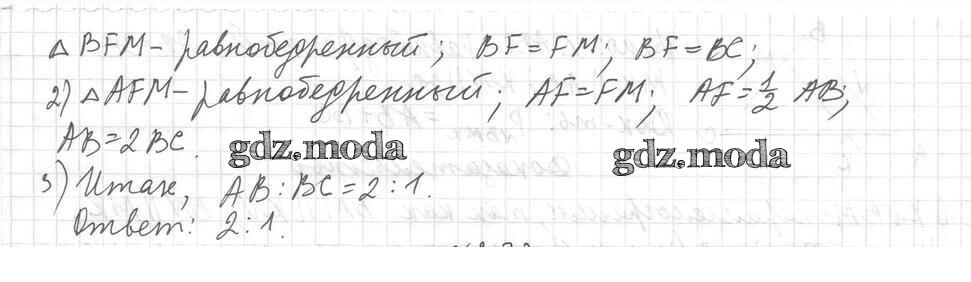 △ BFM – равнобедренный; BF = FM; BF = BC;
2) △ AFM – равнобедренный; AF = FM; AF = 1/2 AB;
AB = 2 BC.
gdz.moda gdz.moda
3) Итак, AB : BC = 2 : 1.
Ответ: 2 : 1.